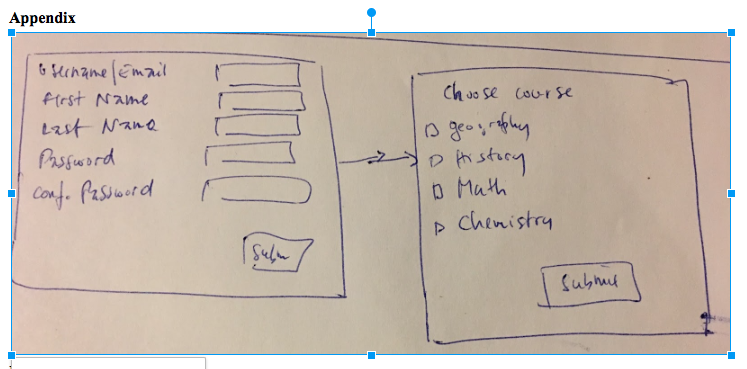 Appendix
Username/Email
First Name
Last Name
Password
conf. Password
Subm
Choose course
geography
History
Math
Chemistry
Submit